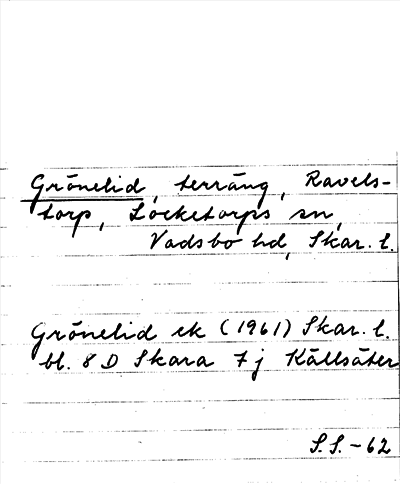 Grönelid, terräng, Ravels-
torp, Locketorps sn,
Vadsbo hd, Skar. l.
Grönelid ek (1961) Skar. l.
bl. 8 D Skara 7 j Källsäter
S.S. -62